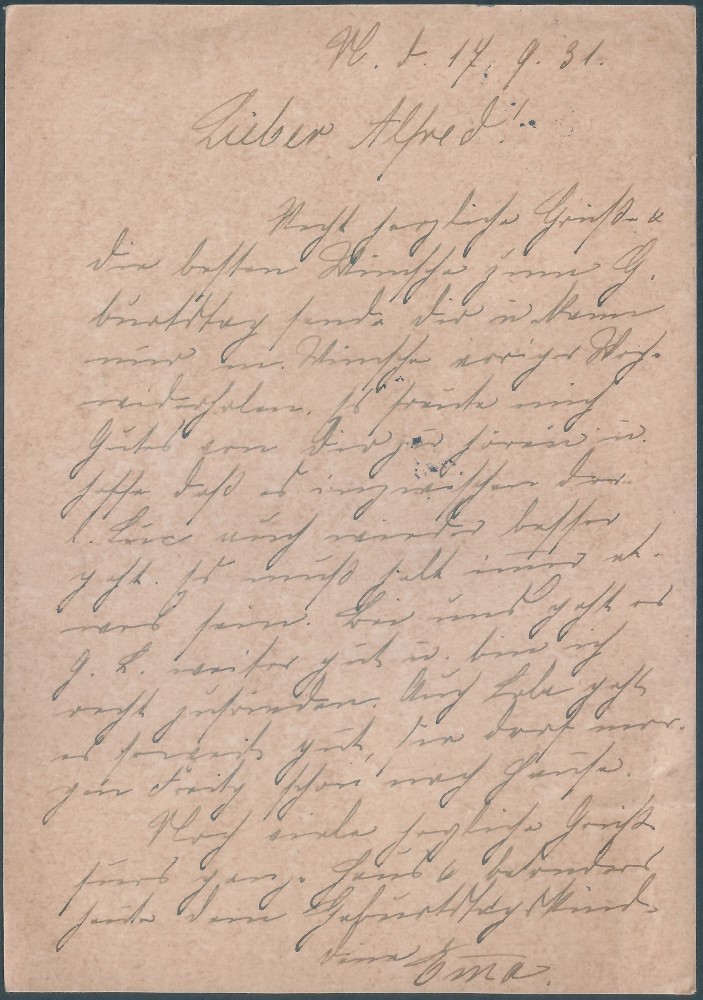 N. d. 17. 9. 31.
Lieber Alfred!
Recht herzliche Grüße &
die besten Wünsche zum G.
burtstag sende Dir u. kann
nur m. Wünsche voriger Woch.
wiederholen. Es freute mich
Gutes von Dir zu hören u.
hoffe daß es inzwischen der
l. auch wieder besser
geht. Es muß halt immer et-
was sein. Bei uns geht es
g. L. weiter gut u. bin ich
recht zufrieden. Auch geht
es soweit gut, sie darf mor-
gen Freitg schon nach Hause.
Noch viele herzliche Grüße
fürs ganze Haus & besonders
heute dem Geburtstagskind
deine Ema.